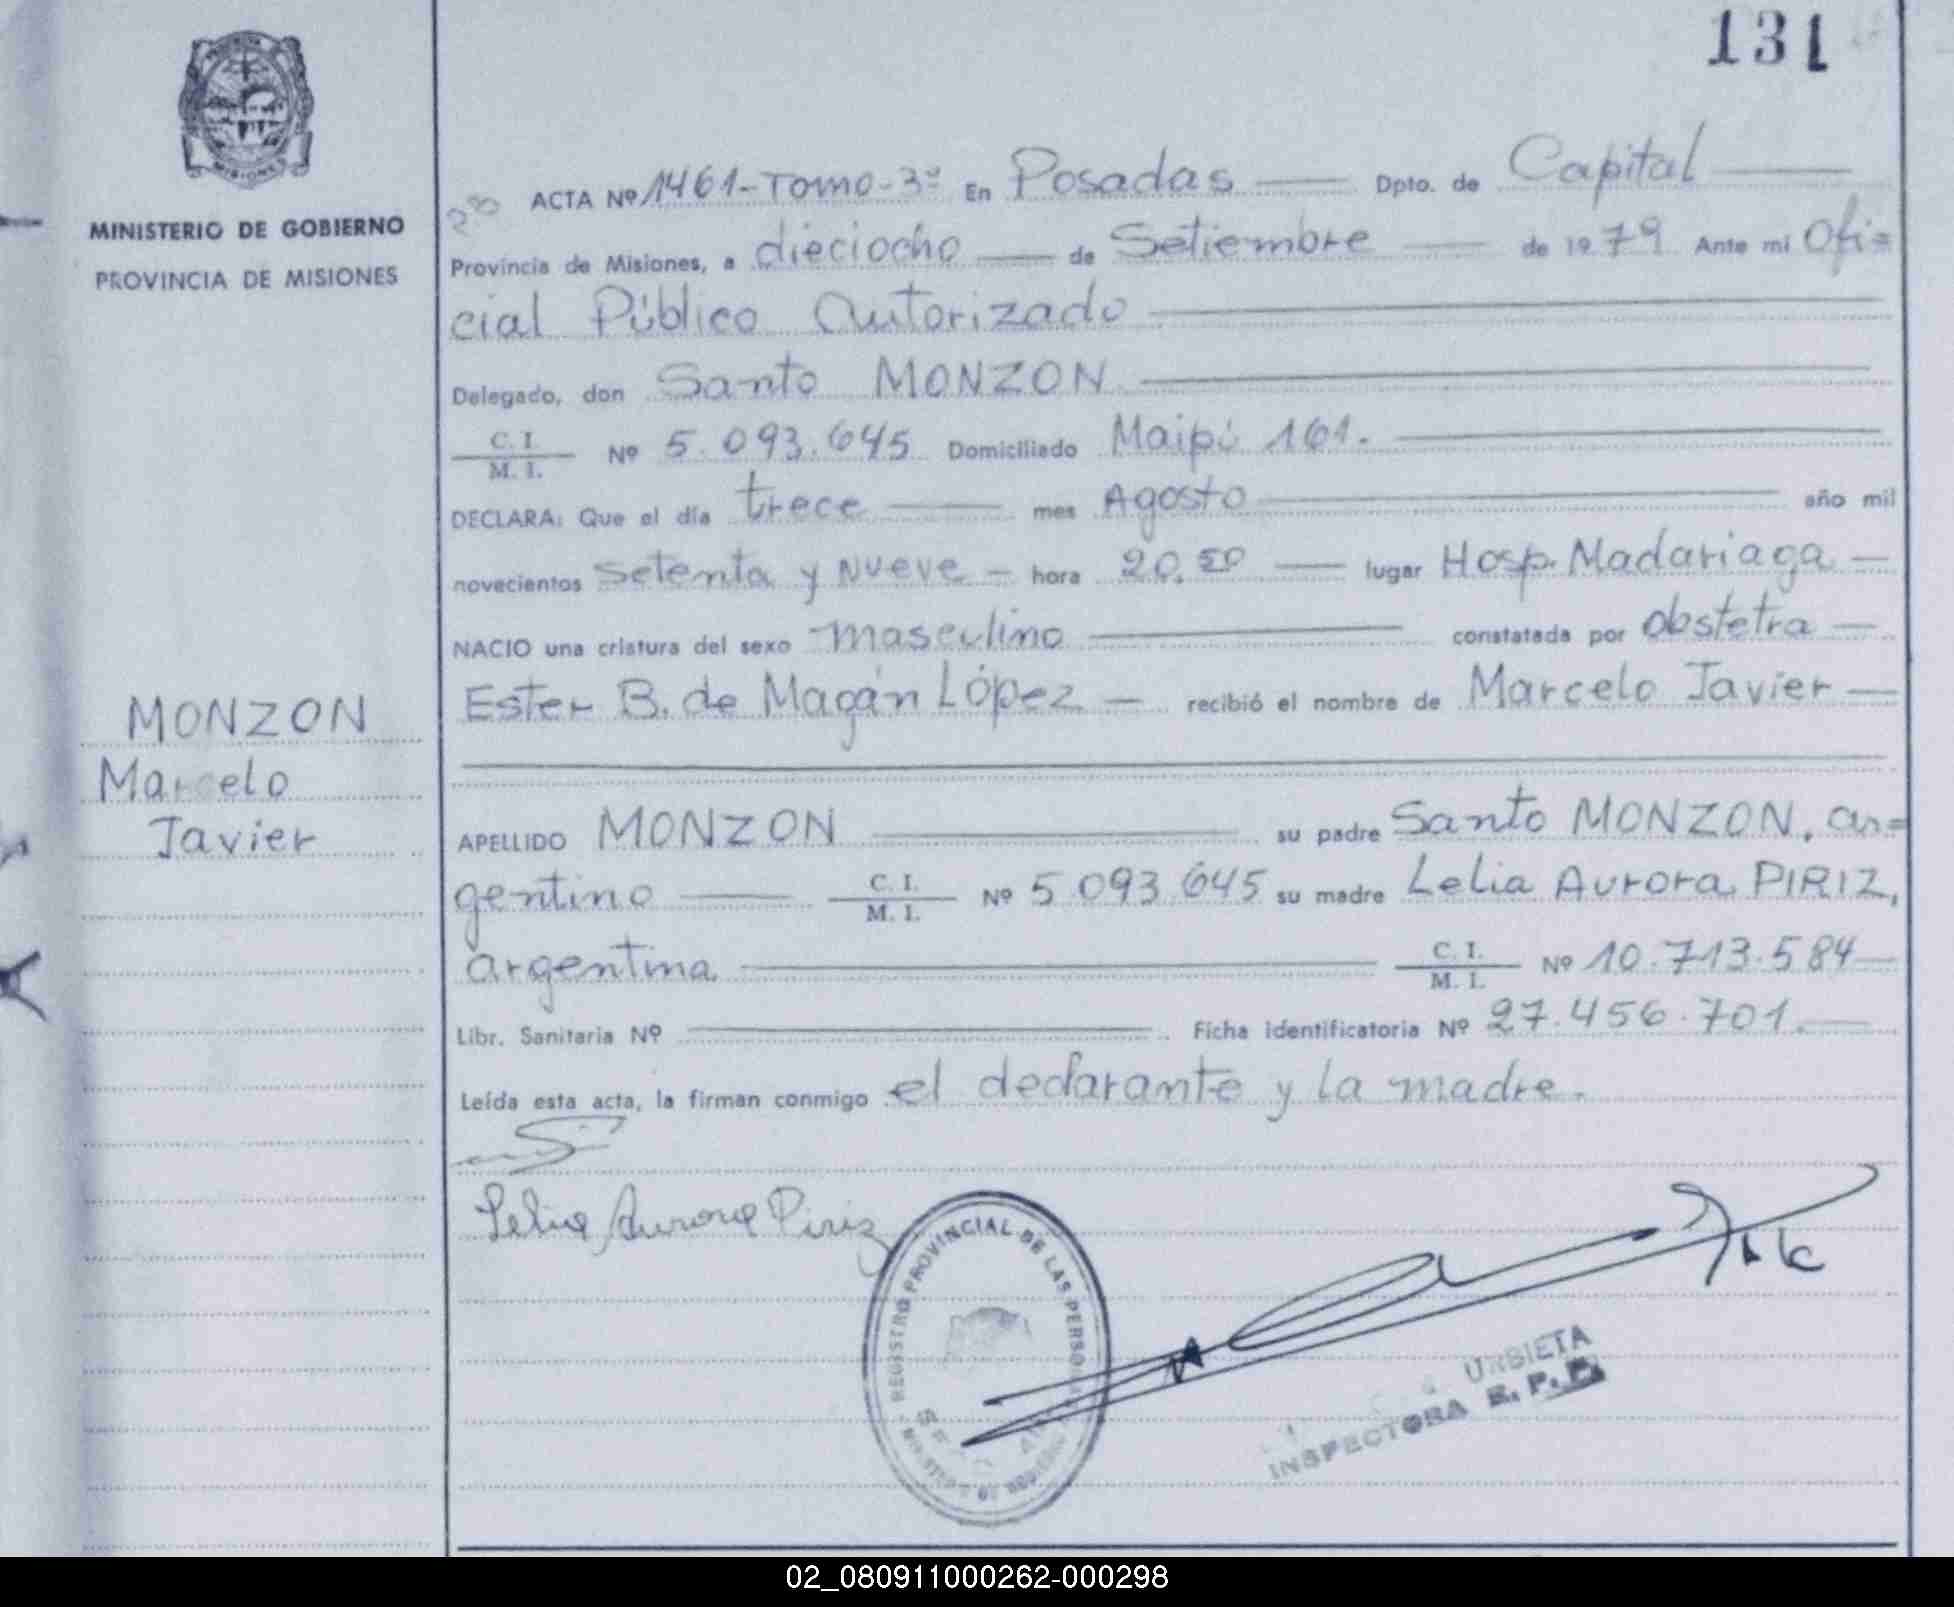 131
MISIONES
MINISTERIO DE GOBIERNO
PROVINCIA DE MISIONES
MONZON
Marcelo
Javier
ACTA Nº 1461-Tomo-3º En Posadas Dpto. de Capital
Provincia de Misiones, a dieciocho de Setiembre de 1979 Ante mi Ofi=
cial Público Autorizado
Delegado, don Santo MONZON
C. I.
M. I. Nº 5.093.645 Domiciliado Maipú 161.
DECLARA: Que el día trece mes Agosto año mil
novecientos setenta y nueve - hora 20.50 lugar Hosp. Madariaga
NACIO una criatura del sexo masculino constatada por obstetra
Ester B. de Magán López recibió el nombre de Marcelo Javier
APELLIDO MONZON su padre Santo MONZON, ar=
gentino C. I.
M. I. Nº 5.093.645 su madre Lelia Aurora PIRIZ,
argentina C. I.
M. I. Nº 10.713.584
Libr. Sanitaria Nº Ficha identificatoria Nº 27.456.701.
Leída esta acta, la firman conmigo el declarante y la madre.
Lelia Aurora Piriz
REGISTRO PROVINCIAL DE LAS PERSONAS
URBIETA
INSPECTORA R. P. P.
02_080911000262-000298